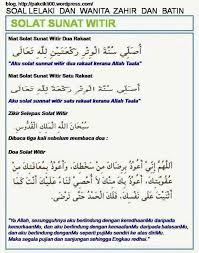 blog. http://pakcik100.wordpress.com/
SOAL LELAKI DAN WANITA ZAHIR DAN BATIN
SOLAT SUNAT WITIR
Niat Solat Sunat Witir Dua Rakaat
أُصَلِّى سُنَّةَ الْوِتْرِ رَكْعَتَيْنِ لِلَّهِ تَعَالَى
Aku solat sunnat witir dua rakaat kerana Allah Taala
Niat Solat Sunat Witir Satu Rakaat
أُصَلِّى سُنَّةَ الْوِتْرِ رَكْعَةً لِلَّهِ تَعَالَى
Aku solat sunnat witir satu rakaat kerana Allah Taala
Zikir Selepas Solat Witir
سُبْحَانَ اللهِ الْمَلِكِ الْقُدُّوسِ
Dibaca tiga kali sebelum membaca doa :
Doa Solat Witir
اللَّهُمَّ إِنِّي أَعُوذُ بِرِضَاكَ مِنْ سَخَطِكَ، وَأَعُوذُ بِمُعَافَاتِكَ مِنْ
عُقُوبَتِكَ، وَأَعُوذُ بِكَ مِنْكَ لَا أُحْصِي ثَنَاءً عَلَيْكَ أَنْتَ كَمَا
أَثْنَيْتَ عَلَى نَفْسِكَ، فَلَكَ الْحَمْدُ حَتَّى تَرْضَى.
"Ya Allah, sesungguhnya aku berlindung dengan keredhaanMu daripada
kemurkaanMu, dan aku berlindung dengan kemaafanMu daripada balasanMu,
dan aku berlindung denganMu seperti pujiMu sendiri ke atas diriMu.
Maka segala pujian dan sanjungan sehingga Engkau redhai."